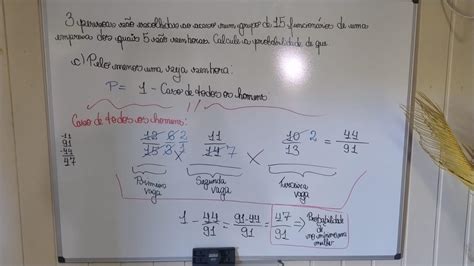 3 pessoas são escolhidas ao acaso num grupo de 15 funcionários de uma
empresa dos quais 5 são senhoras. Calcule a probabilidade de que
c) Pelo menos uma seja senhora:
P = 1 - Caso de todos os homens
Caso de todos os homens:
11
91
44
47
12 6 2 / 15 3 1 × 11 / 14 7 × 10 2 / 13 = 44 / 91
Primeira vaga
Segunda vaga
Terceira vaga
1 - 44/91 = 91-44/91 = 47/91 ⇒ Probabilidade de no mínimo uma mulher